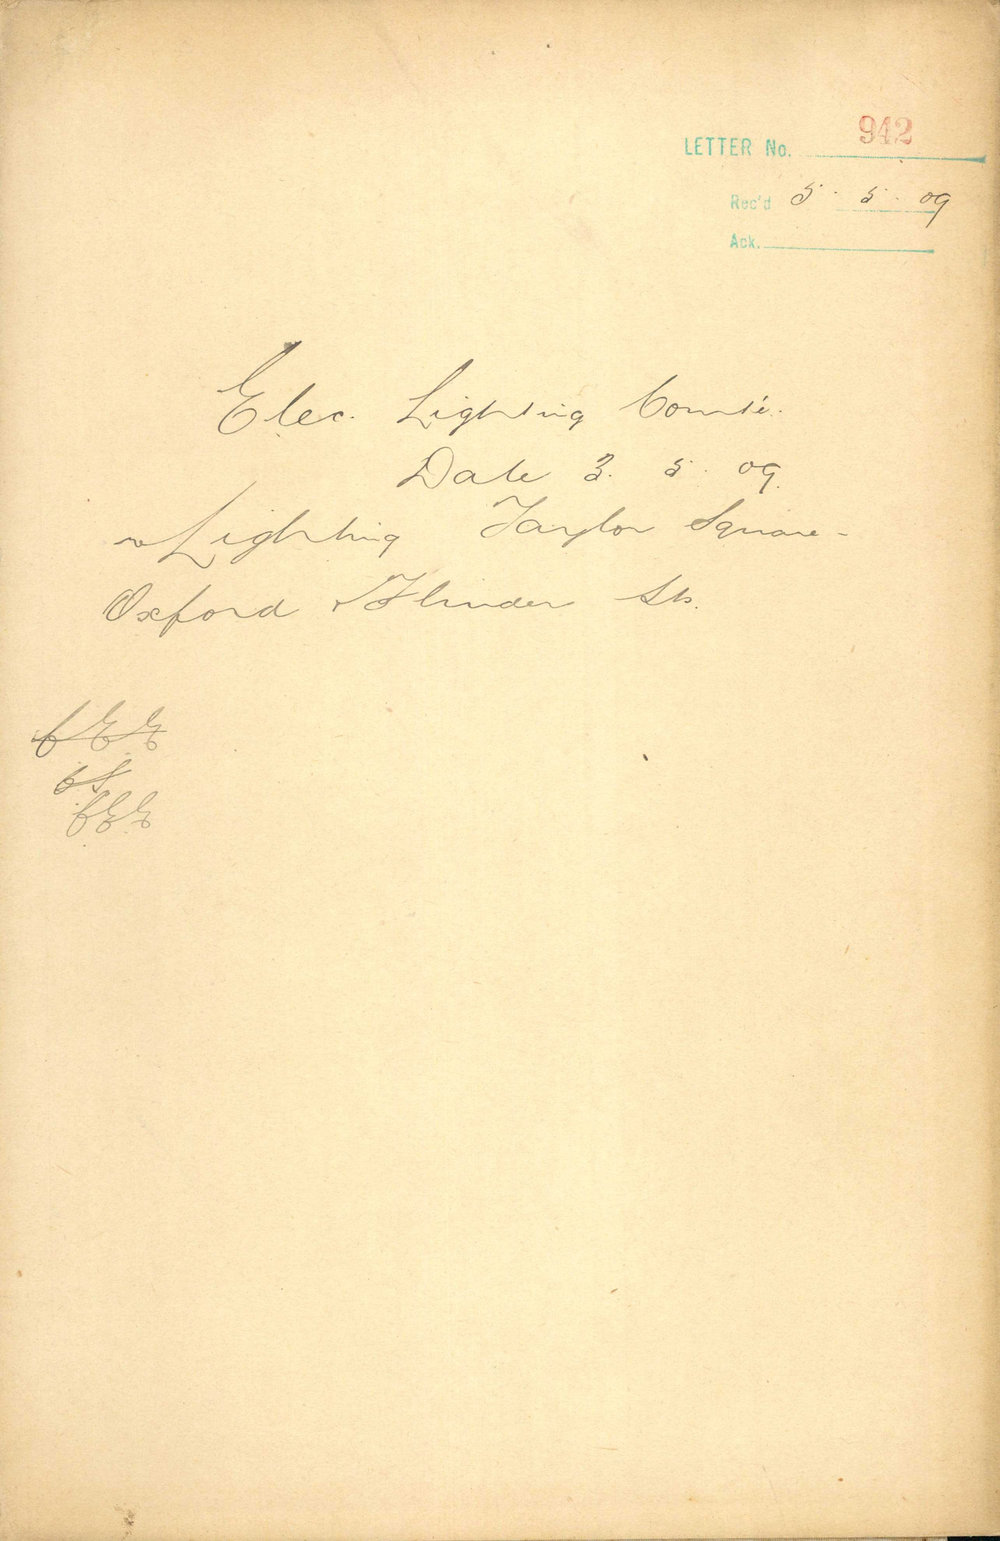 LETTER No. 942
Rec'd 5. 5. 09
Ack.
Elec. Lighting Comté.
Date 3. 5. 09.
re Lighting Taylor Square -
Oxford & Flinder Sts.
C E E
CS
CEE